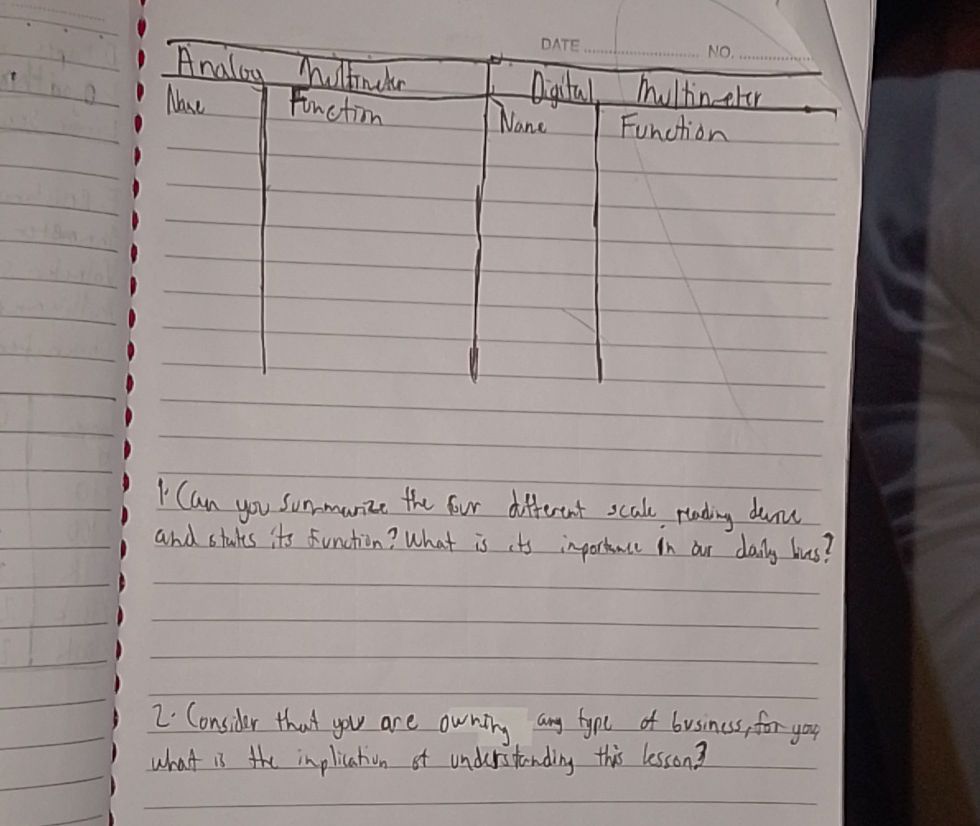 DATE NO.
Analog Multimeter Digital Multimeter
Name Function Name Function
1. Can you summarize the four different scale reading device
and states its function? What is its importance in our daily lives?
2. Consider that you are owning any type of business, for you,
what is the implication of understanding this lesson?